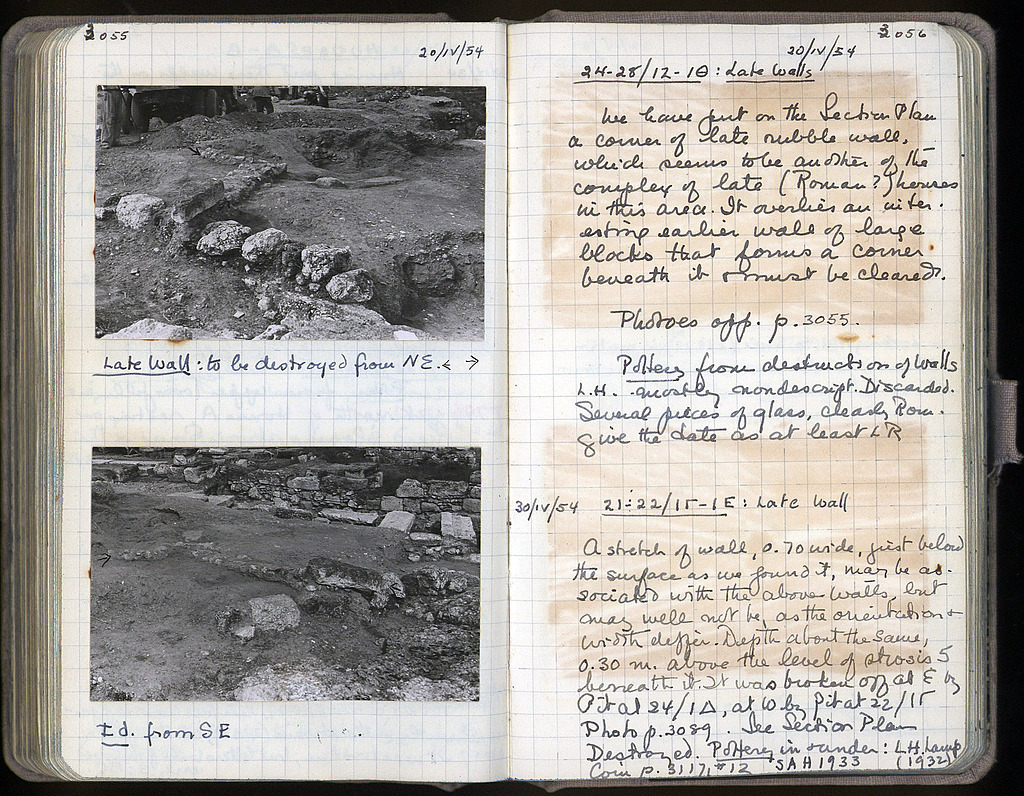 3055
20/IV/54
Late Wall: to be destroyed from NE. ← →
Id. from SE
3056
20/IV/54
24-28/12-10 : Late Walls
We have put on the Section Plan
a corner of late rubble wall,
which seems to be another of the
complex of late (Roman?) houses
in this area. It overlies an inter-
esting earlier wall of large
blocks that forms a corner
beneath it & must be cleared.
Photoes opp. p. 3055.
Pottery from destruction of walls
L.H. mostly nondescript. Discarded.
Several pieces of glass, clearly Rom.
give the date as at least LR
30/IV/54 21-22/15-1E : Late Wall
A stretch of wall, 0.70 wide, just below
the surface as we found it, may be as-
sociated with the above walls, but
may well not be, as the orientation &
width differ. Depth about the same,
0.30 m. above the level of strosis 5
beneath it. It was broken off at E by
Pit at 24/1Δ, at W by Pit at 22/15
Photo p. 3089. See Section Plan
Destroyed. Pottery in & under: L.H. Lamp
Coin p. 3117, #12 SAH 1933 (1932)